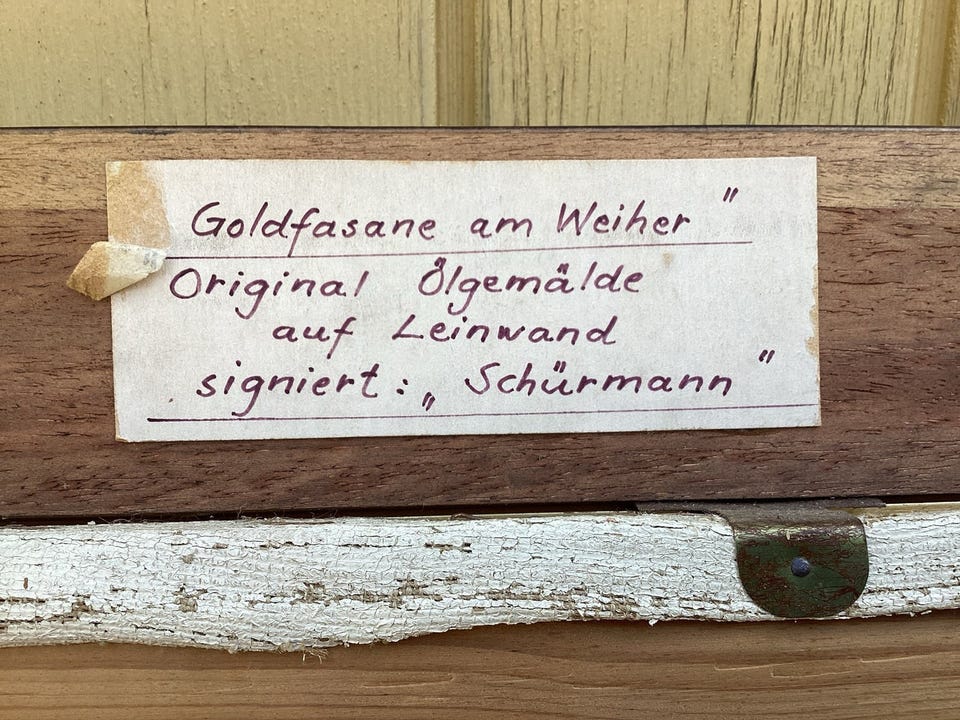 Goldfasane am Weiher"
Original Ölgemälde
auf Leinwand
signiert: „Schürmann"